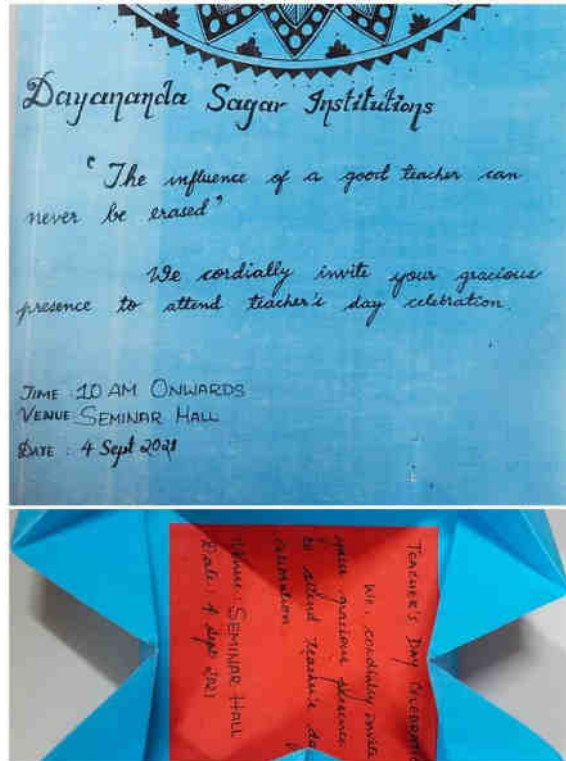 Dayananda Sagar Institutions
"The influence of a good teacher can
never be erased"
We cordially invite your gracious
presence to attend teacher's day celebration.
TIME : 10 AM ONWARDS
VENUE SEMINAR HALL
DATE : 4 Sept 2021
TEACHER'S DAY
We cordially invite
your gracious presence
to attend teacher's
Venue: SEMINAR HALL
Date: 4 Sept 2021